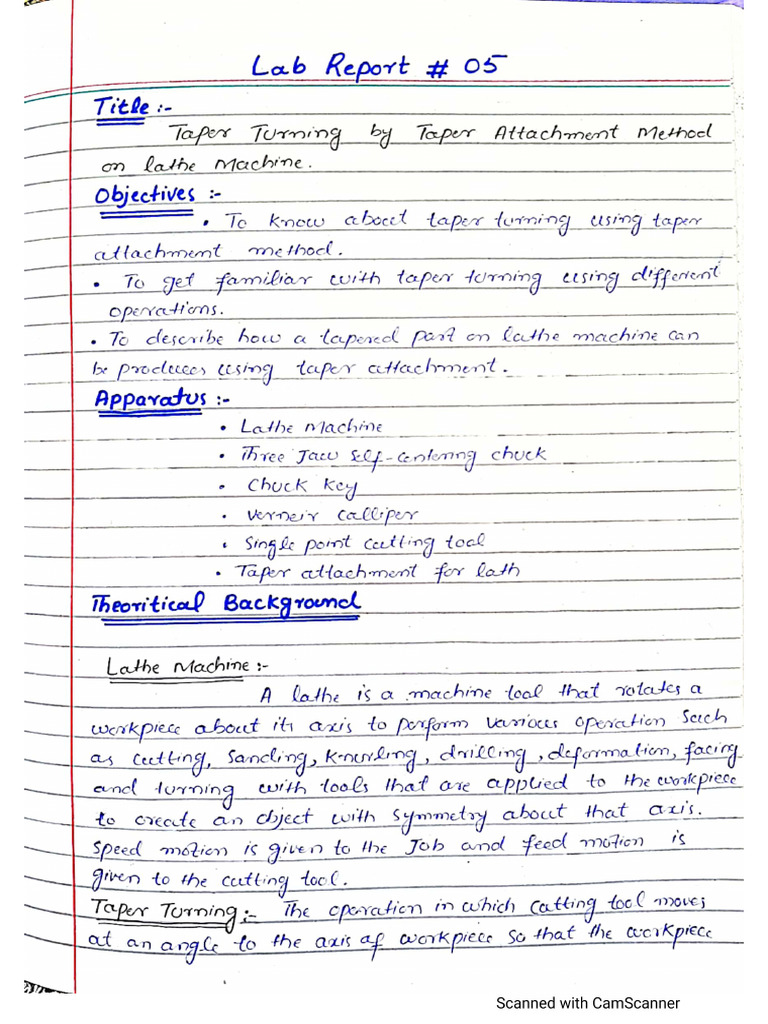 Lab Report # 05
Title :-
Taper Turning by Taper Attachment Method
on lathe Machine.
Objectives :-
• To know about taper turning using taper
attachment method.
• To get familiar with taper turning using different
operations.
• To describe how a tapered part on lathe machine can
be produces using taper attachment.
Apparatus :-
• Lathe Machine
• Three Jaw Self-centering chuck
• Chuck Key
• Verneir Calliper
• Single point cutting tool
• Taper attachment for lath
Theoritical Background
Lathe Machine :-
A lathe is a machine tool that rotates a
workpiece about its axis to perform various operation such
as cutting, Sanding, Knurling, drilling, deformation, facing
and turning with tools that are applied to the workpiece
to create an object with symmetry about that axis.
Speed motion is given to the Job and feed motion is
given to the cutting tool.
Taper Turning :- The operation in which Cutting tool moves
at an angle to the axis of workpiece so that the workpiece
Scanned with CamScanner